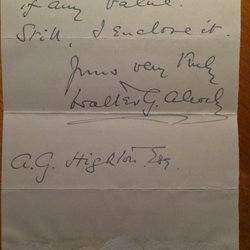 if any value.
Still, I enclose it.
Yours very truly
Walter G. Alcock
A. G. Highton. Esq